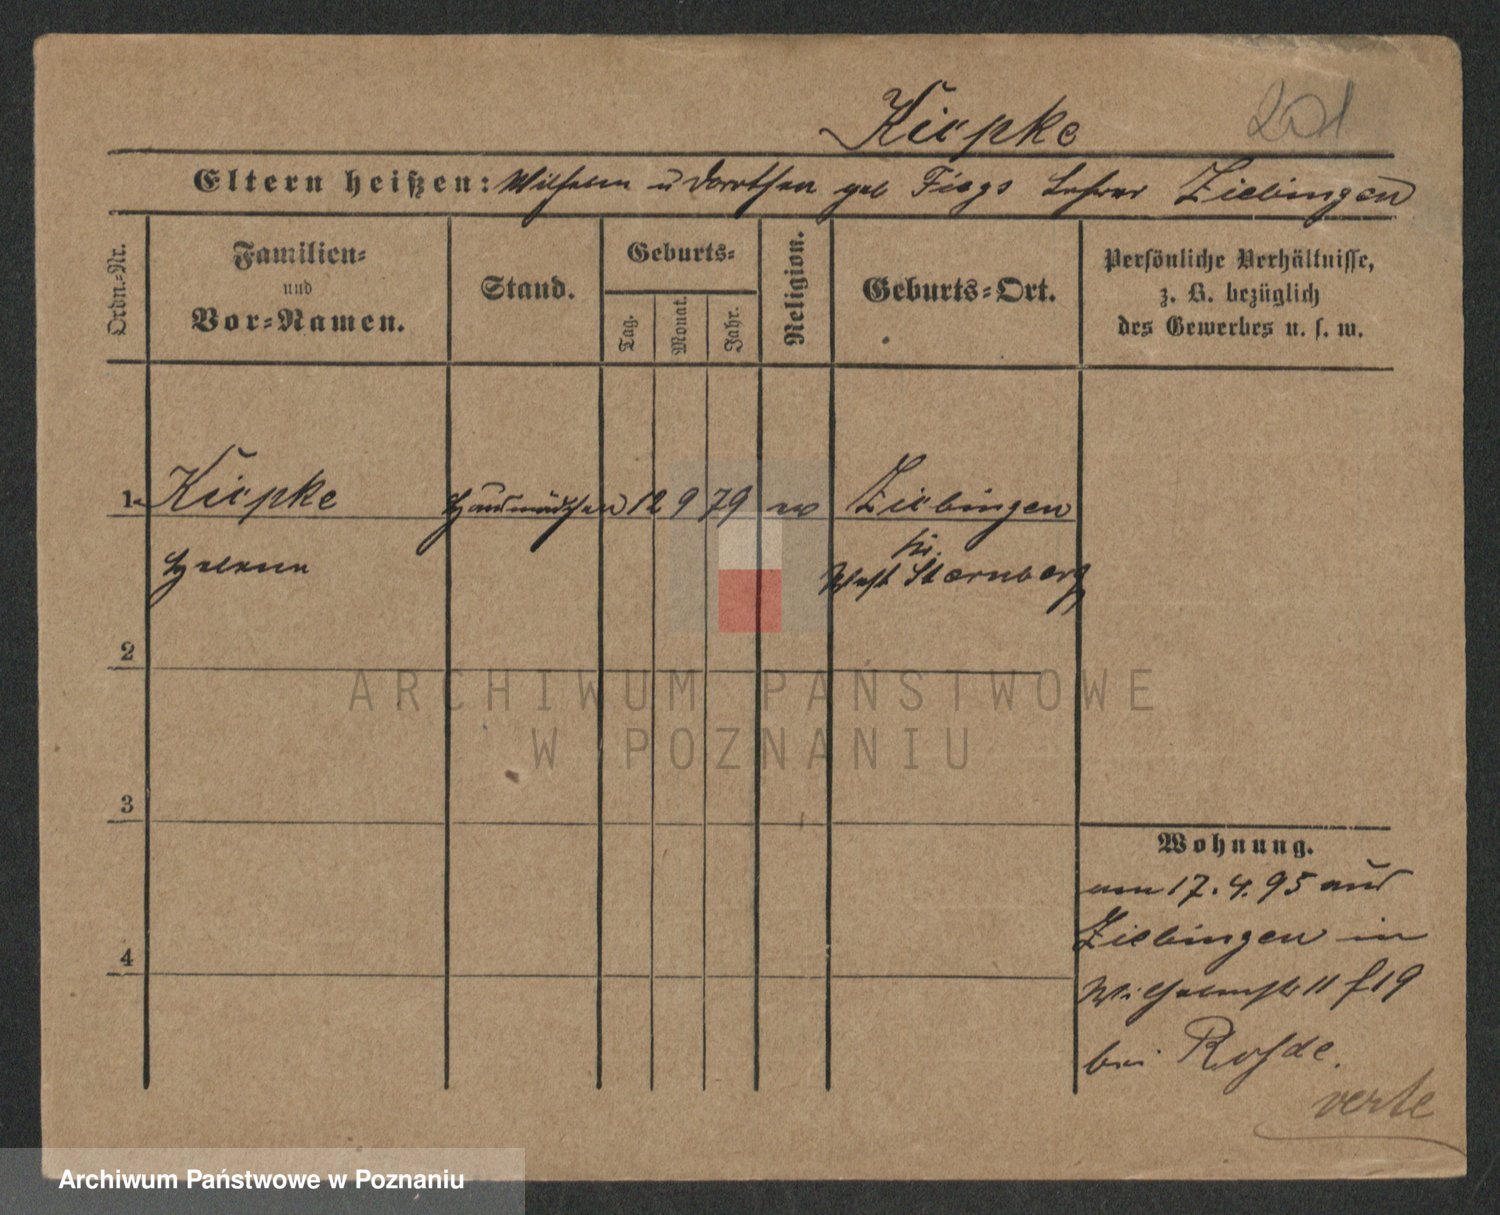 Kiepke 201
Eltern heißen: Wilhelm u Dorothea geb Lehrer Ziebingen
Ordn.-Nr.
Familien-
und
Vor-Namen.
Stand.
Geburts-
Tag.
Monat.
Jahr.
Religion.
Geburts-Ort.
Persönliche Verhältnisse,
z. B. bezüglich
des Gewerbes u. s. w.
1. Kiepke Hausmädchen 12 9 79 ev Ziebingen
Helene Kr.
West Sternberg
2
3
4
Wohnung.
am 17.4.95 aus
Ziebingen in
Wilhelmstr 11 19
bei Rohde.
verte
ARCHIWUM PAŃSTWOWE
W POZNANIU
Archiwum Państwowe w Poznaniu